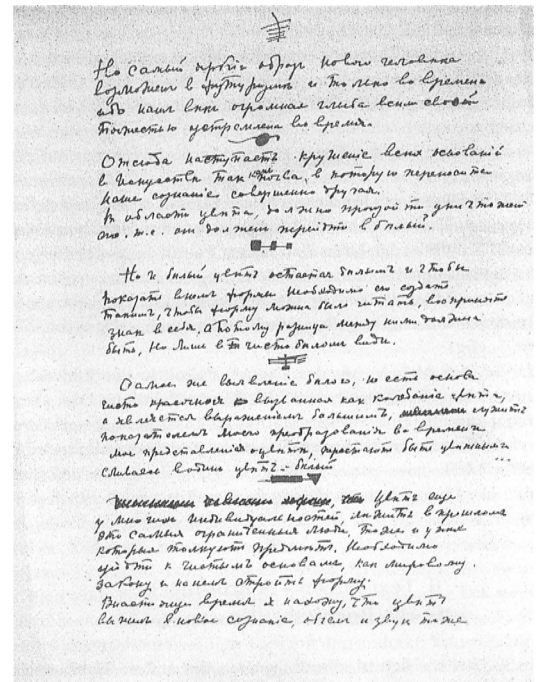 Но самый яркий образ нового человека
возможен в футуризме и только во времени
ибо наш век огромная глыба всею своей
тяжестью устремлена во время.
Отсюда наступаетъ крушение всех оснований
в Искусстве так как почва, в которую переносится
наше сознаніе совершенно другая.
В области цвета должно произойти уничтожение
т.е. он должен перейти в белый.
Но и белый цвет остается белым и чтобы
показать в нем формы необходимо его создать
таким, чтобы форму можно было читать, воспринять
знак в себя. А потому разница между ними должна
быть, но лишь в чисто белом виде.
Самое же выявление белого, то есть основа
чисто красочная вызванная как колебание цвета,
а является выражением большим, служить
показателем моего преобразования во времени
мое представление о цвете, перестает быть цветным
сливаясь в один цвет - белый
цветъ еще
у многих индивидуальностей лежит в прошлом
это самые ограниченные люди, тоже и у тех
которые толкуют предметъ. Необходимо
идти к чистым основам, как мировому
закону и на нем строить форму.
В настоящее время я нахожу, что цвет
вышел в новое сознаніе, объем и звук тоже